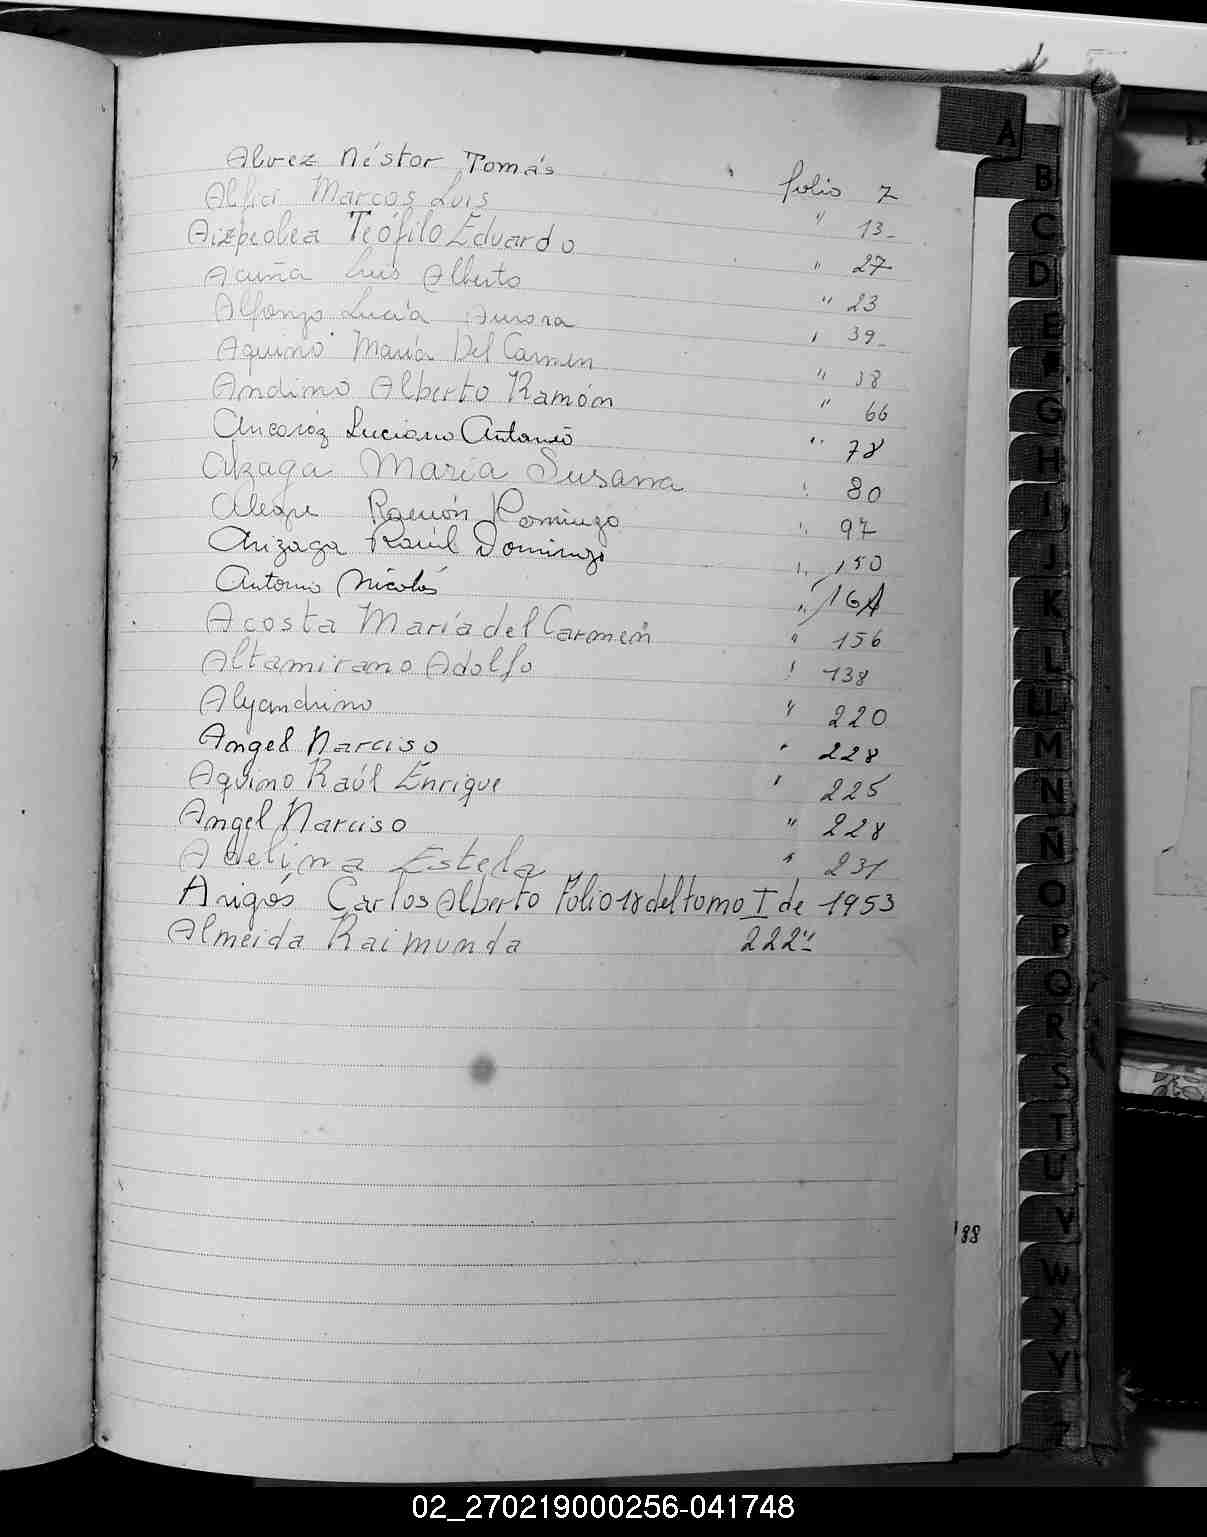 Alvez Néstor Tomás folio 7
Alfici Marcos Luis " 13-
Aizpeolea Teófilo Eduardo " 27
Acuña Luis Alberto " 23
Alfonzo Lucía Aurora " 39-
Aquino María Del Carmen " 38
Andino Alberto Ramón " 66
Luciano Antonio " 78
Alzaga María Susana " 80
Alegre Ramón Domingo " 97
Arizaga Raúl Domingo " 150
Antonio Nicolás " 16A
Acosta María del Carmen " 156
Altamirano Adolfo " 138
Alejandrino " 220
Angel Narciso " 228
Aquino Raúl Enrique " 225
Angel Narciso " 228
Adelina Estela " 231
Arigós Carlos Alberto Folio 18 del tomo I de 1953
Almeida Raimunda 222
188
A
B
C
D
E
F
G
H
I
J
K
L
LL
M
N
Ñ
O
P
Q
R
S
T
U
V
W
X
Y
Z
02_270219000256-041748